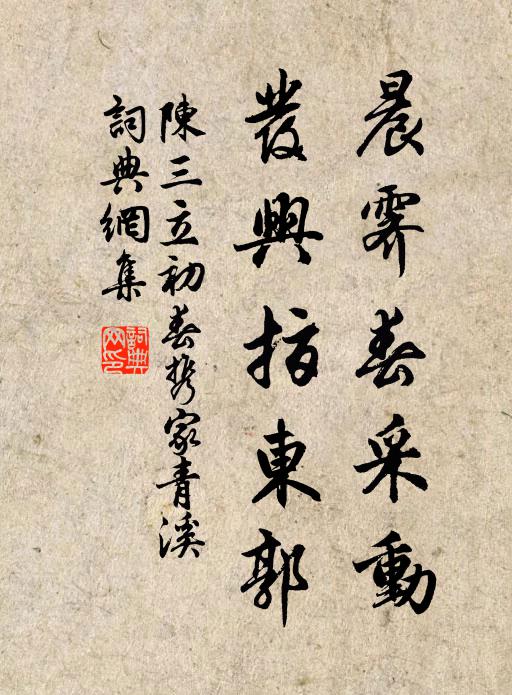 晨霽春采動
發興指東郭
陳三立初春携家青溪
詞典網集
詞典网印